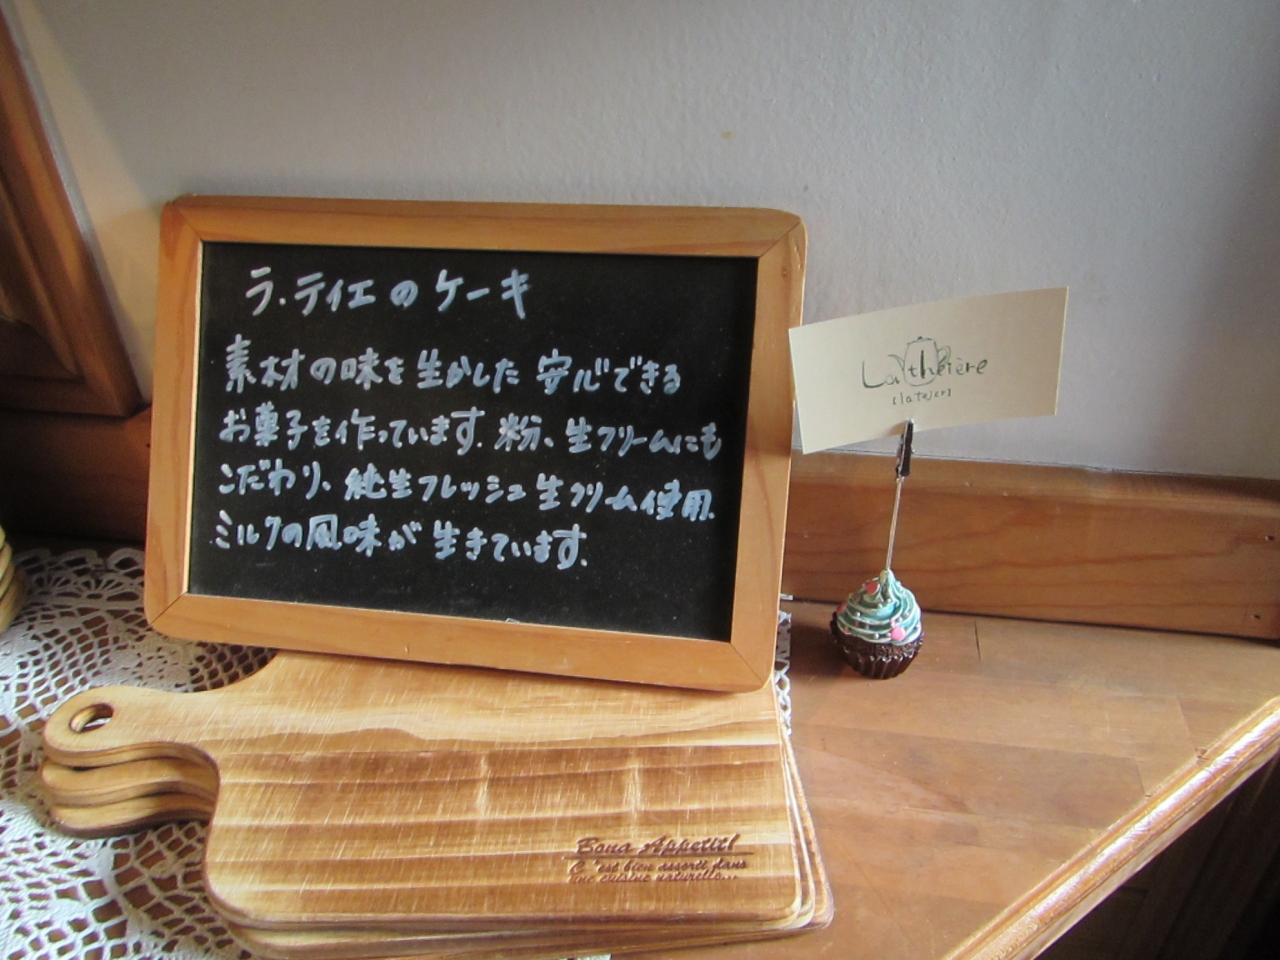 ラ・ティエのケーキ
素材の味を生かした安心できる
お菓子を作っています。粉、生クリームにも
こだわり、純生フレッシュ生クリーム使用。
ミルクの風味が生きています。
La théière
[latejɛr]
Bona Appetit!
C'est bien assorti dans
une cuisine naturelle...